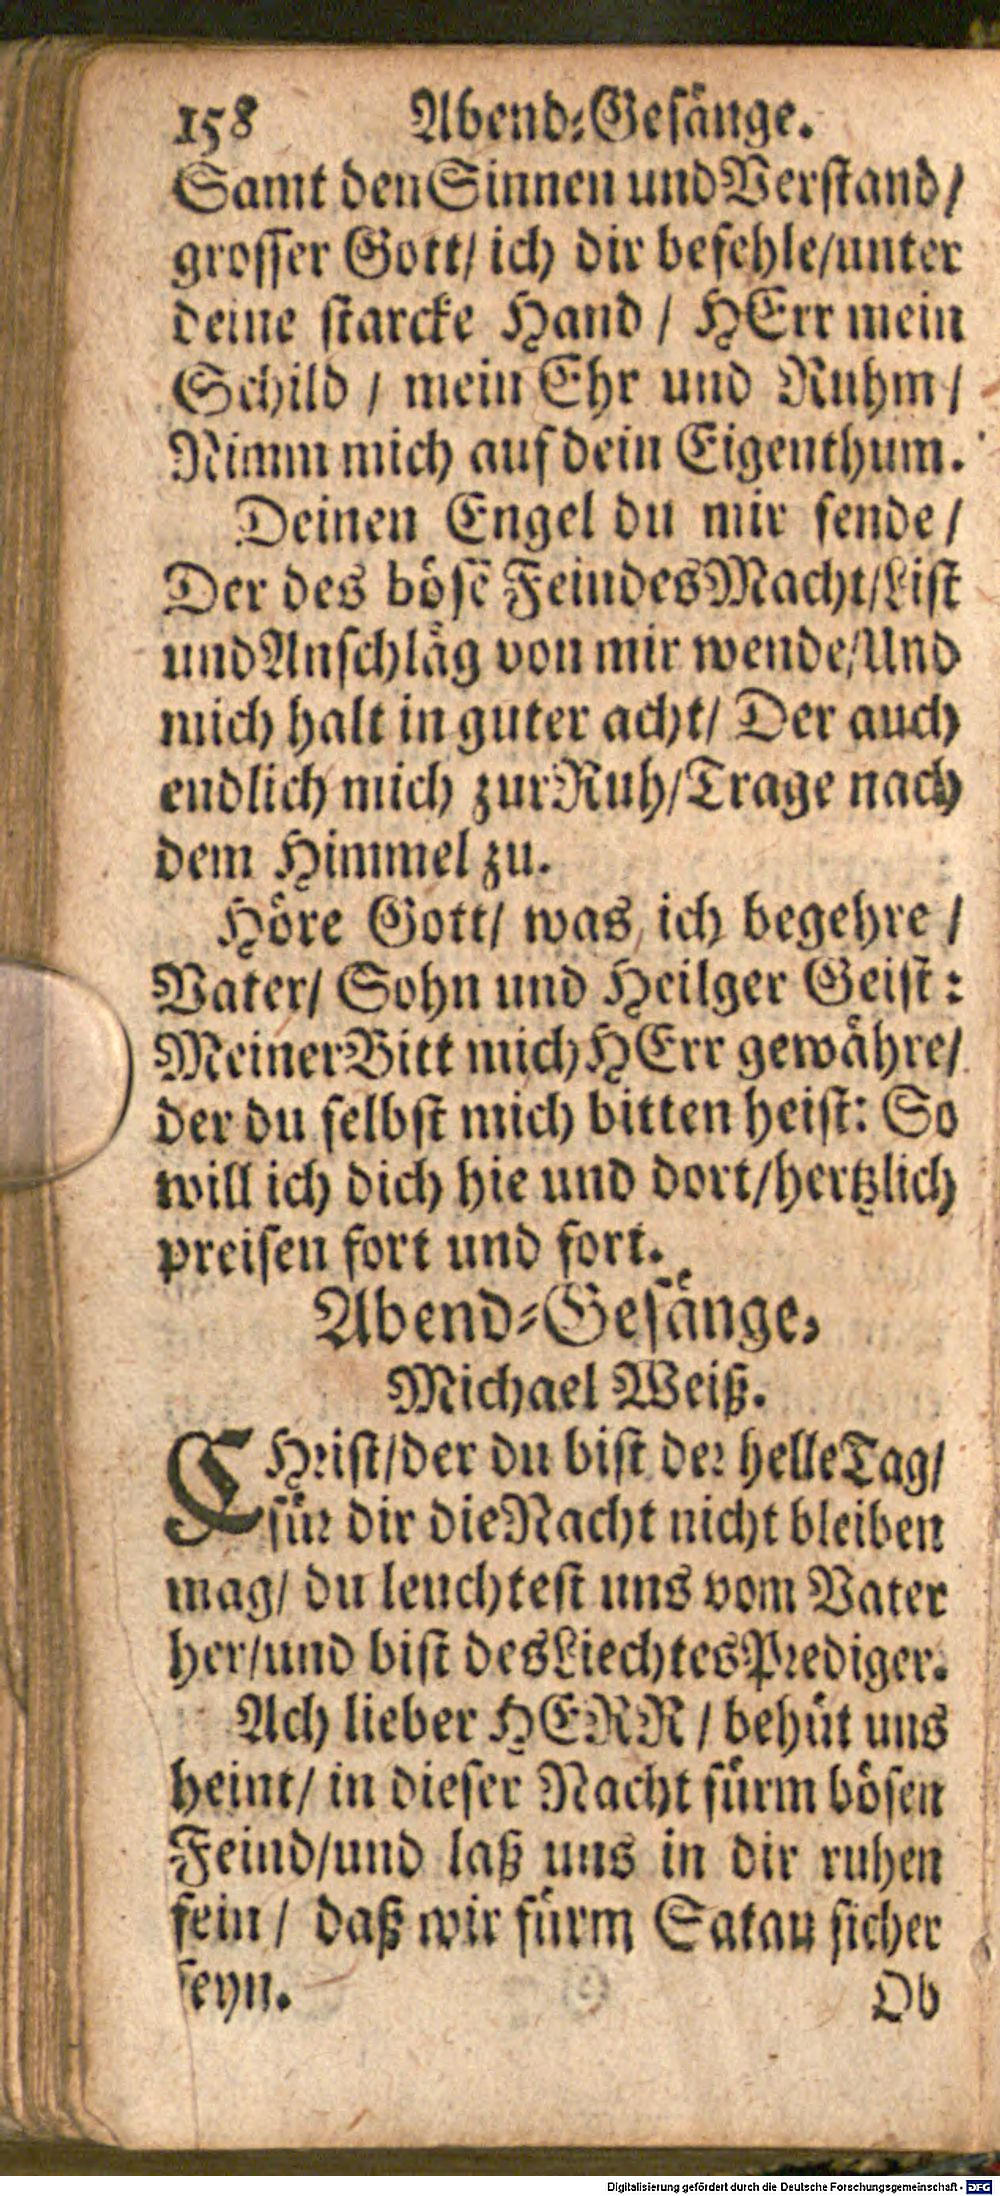 158 Abend-Gesänge.
Samt den Sinnen und Verstand/
grosser Gott/ ich dir befehle/unter
deine starcke Hand / HErr mein
Schild / mein Ehr und Ruhm/
Nimm mich auf dein Eigenthum.
Deinen Engel du mir sende/
Der des bösē Feindes Macht/List
und Anschläg von mir wende/Und
mich halt in guter acht/ Der auch
endlich mich zur Ruh/Trage nach
dem Himmel zu.
Höre Gott/ was ich begehre /
Vater/ Sohn und Heilger Geist:
Meiner Bitt mich HErr gewähre/
der du selbst mich bitten heist: So
will ich dich hie und dort/hertzlich
preisen fort und fort.
Abend-Gesänge,
Michael Weiß.
CHrist/der du bist der helle Tag/
für dir die Nacht nicht bleiben
mag/ du leuchtest uns vom Vater
her/und bist des Liechtes Prediger.
Ach lieber HERR / behüt uns
heint/ in dieser Nacht fürm bösen
Feind/und laß uns in dir ruhen
fein / daß wir fürm Satan sicher
seyn.
Ob
Digitalisierung gefördert durch die Deutsche Forschungsgemeinschaft - DFG